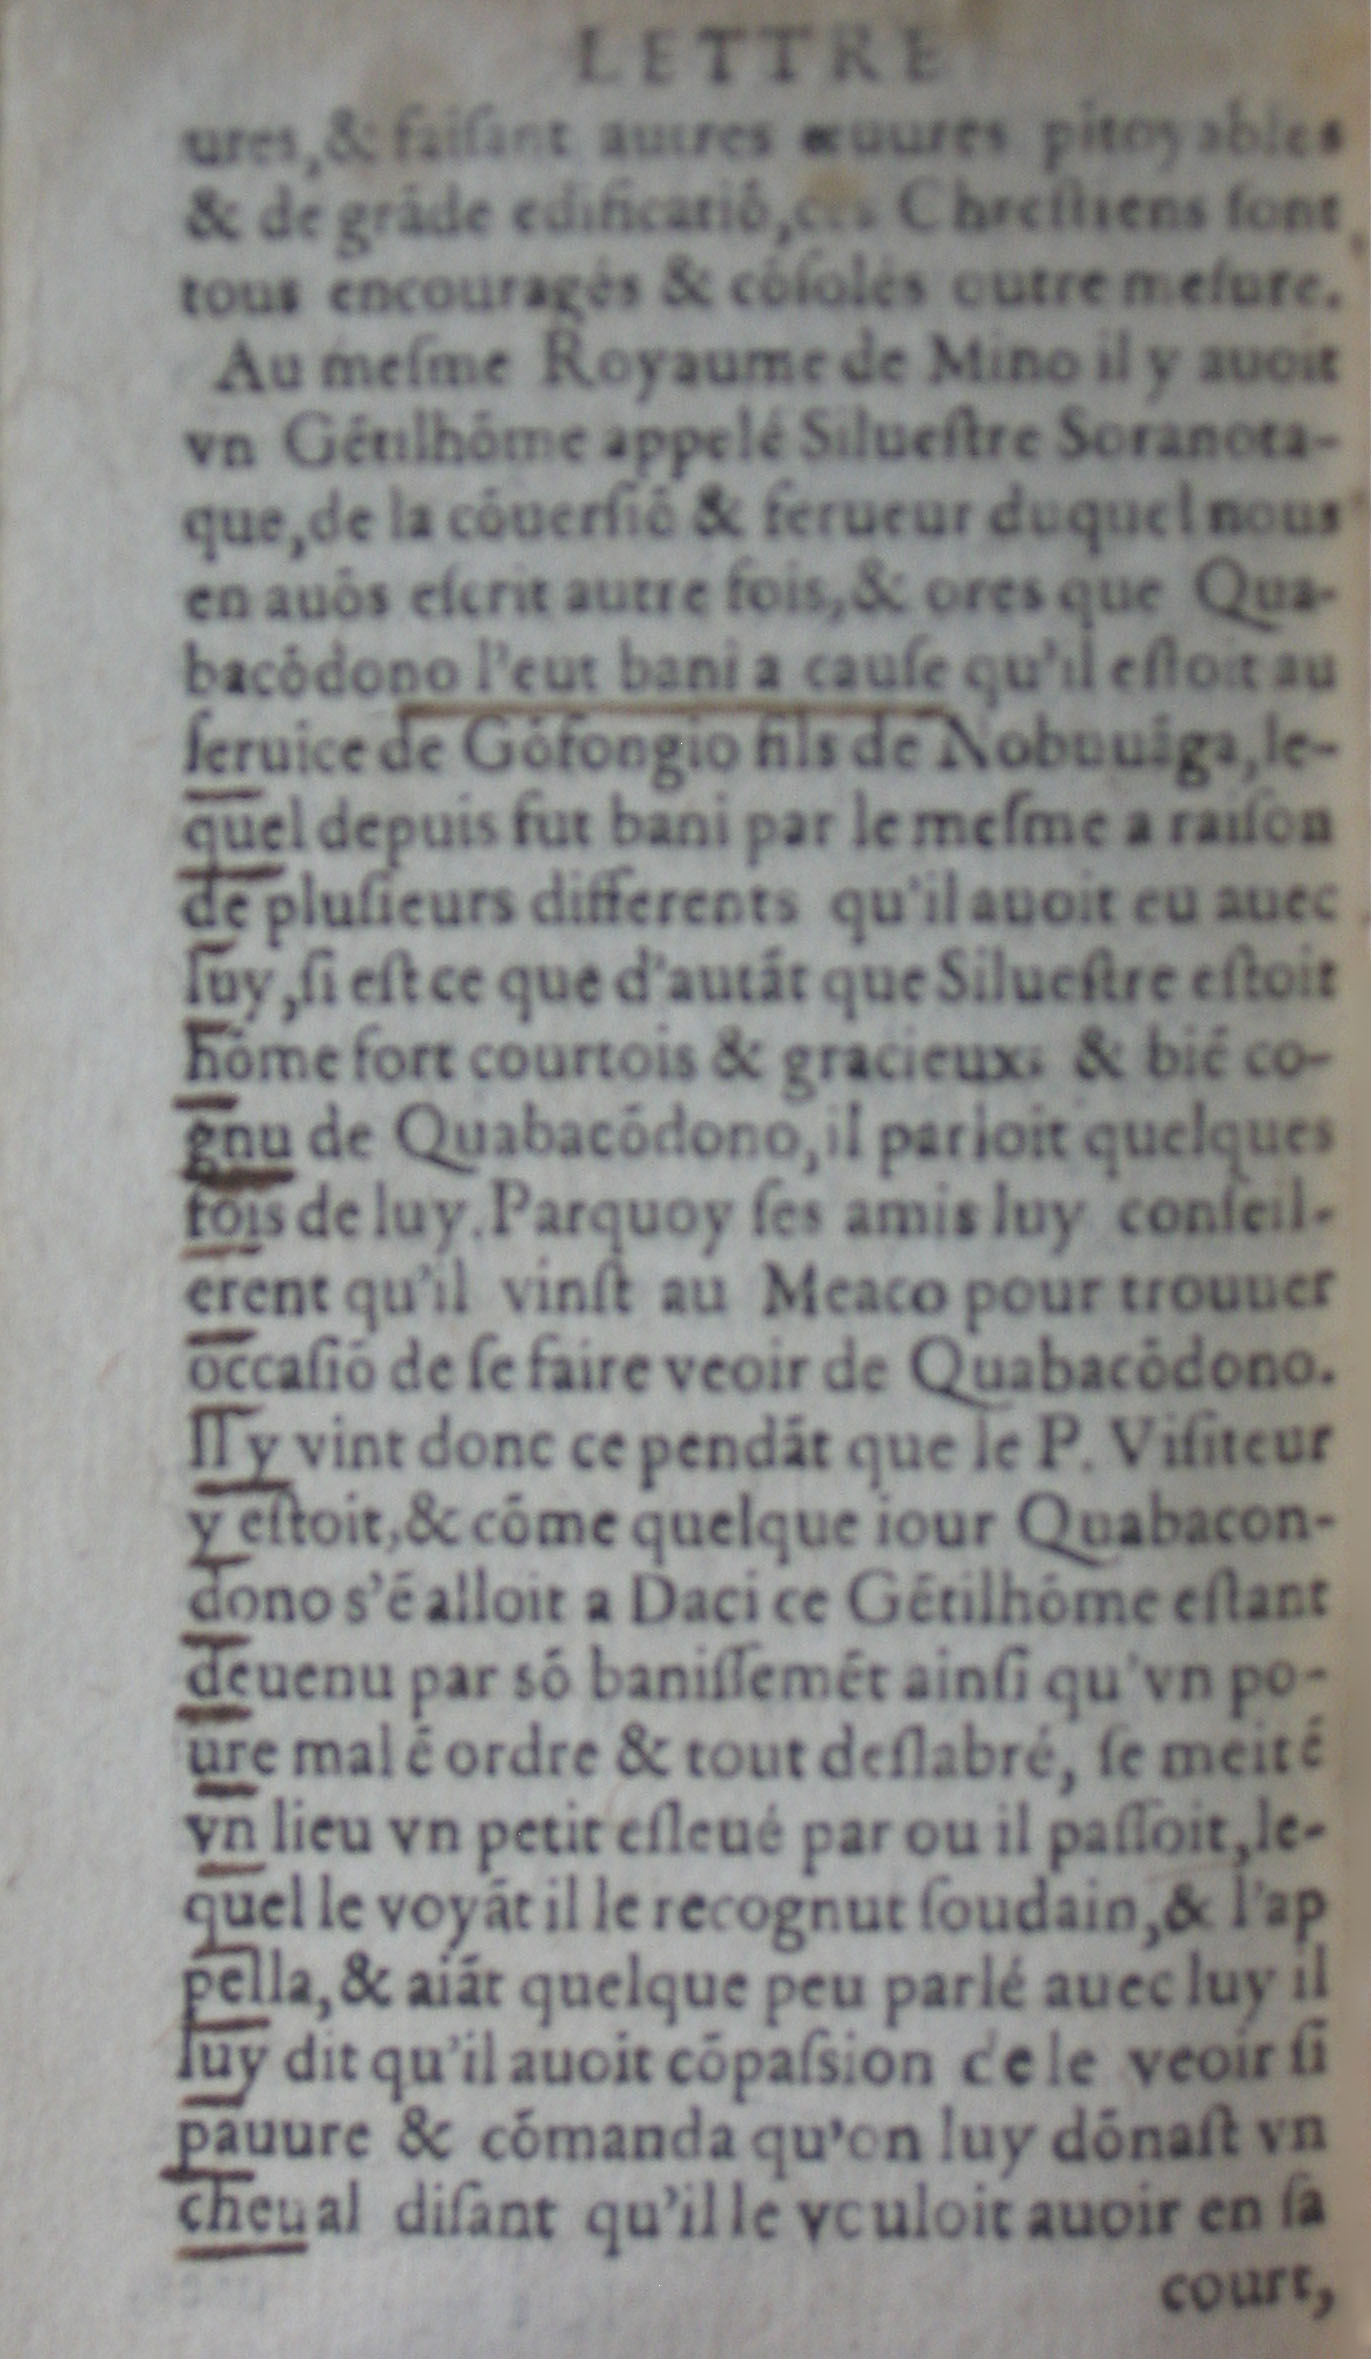 LETTRE
ures,& faiſant autres œuures pitoyables
& de grãde edificatiõ,ces Chreſtiens ſont
tous encouragés & cõſolés outre meſure.
Au meſme Royaume de Mino il y auoit
vn Gẽtilhõme appelé Silueſtre Soranota-
que,de la cõuerſiõ & ferueur duquel nous
en auõs eſcrit autre fois,& ores que Qua-
bacõdono l'eut bani a cauſe qu'il eſtoit au
ſeruice de Gõfongio fils de Nobuuãga,le-
quel depuis fut bani par le meſme a raiſon
de pluſieurs differents qu'il auoit eu auec
luy,ſi eſt ce que d'autãt que Silueſtre eſtoit
hõme fort courtois & gracieux, & biẽ co-
gnu de Quabacõdono,il parloit quelques
fois de luy.Parquoy ſes amis luy conſeil-
erent qu'il vinſt au Meaco pour trouuer
occaſiõ de ſe faire veoir de Quabacõdono.
Il y vint donc ce pendãt que le P. Viſiteur
y eſtoit,& cõme quelque iour Quabacon-
dono s'ẽ alloit a Daci ce Gẽtilhõme eſtant
deuenu par sõ baniſſemẽt ainſi qu'vn po-
ure mal ẽ ordre & tout deſlabré, ſe meit ẽ
vn lieu vn petit eſleué par ou il paſſoit,le-
quel le voyãt il le recognut ſoudain,& l'ap
pella,& aiãt quelque peu parlé auec luy il
luy dit qu'il auoit cõpaſsion de le veoir ſi
pauure & cõmanda qu'on luy dõnaſt vn
cheual diſant qu'il le vouloit auoir en ſa
court,